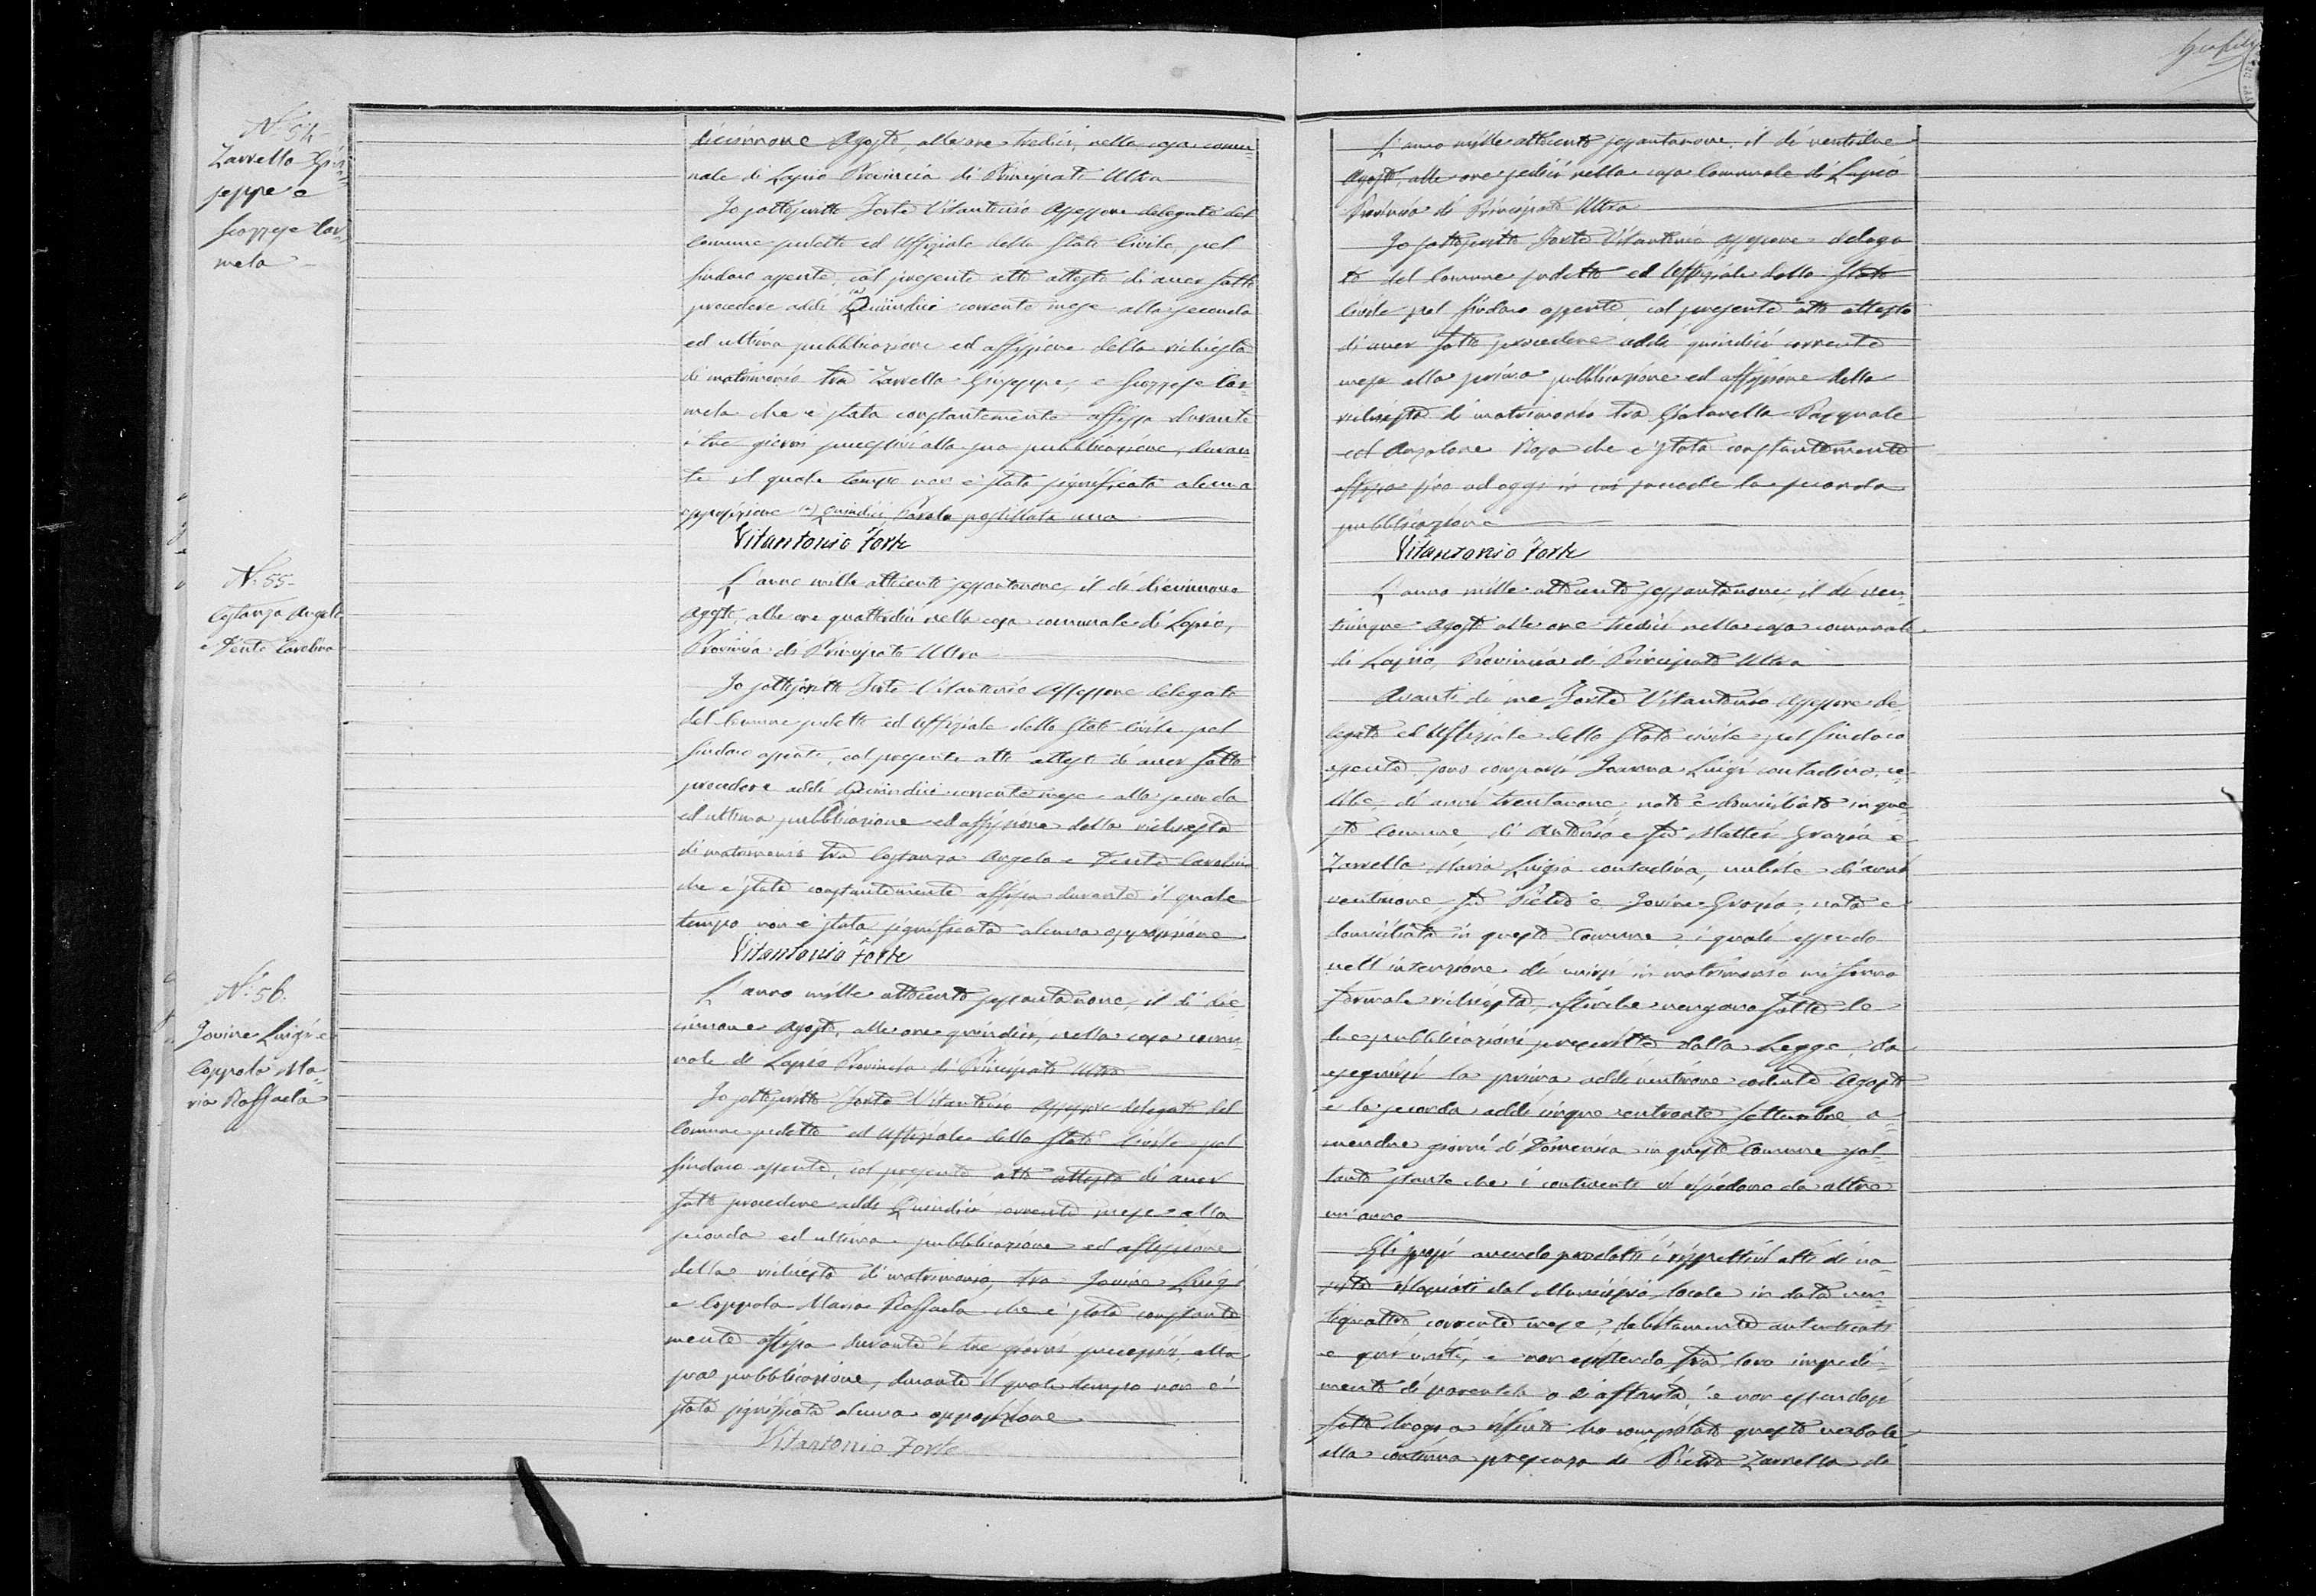 N.° 54
Zarrella Giu-
seppe e
Scozzese Car-
mela
diciannove Agosto, alle ore tredici, nella casa comu-
nale di Lapio Provincia di Principato Ultra
Io sottoscritto Forte Vitantonio Assessore delegato del
Comune sudetto ed Uffiziale dello Stato Civile, pel
Sindaco assente, col presente atto attesto di aver fatto
procedere addì (a) Quindici corrente mese alla seconda
ed ultima pubblicazione ed affissione della richiesta
di matrimonio tra Zarrella Giuseppe, e Scozzese Car-
mela che è stata constantemente affissa durante
i tre giorni successivi alla sua pubblicazione, duran-
te il quale tempo non è stata significata alcuna
opposizione (a) Quindici, Parola postillata una
Vitantonio Forte
N.° 55
Costanza Angelo
e Dente Carolina
L'anno mille ottocento sessantanove, il dì diciannove
Agosto, alle ore quattordici nella casa comunale di Lapio,
Provincia di Principato Ultra
Io sottoscritto Forte Vitantonio Assessore delegato
del Comune sudetto ed Uffiziale dello Stato Civile pel
Sindaco assente, col presente atto attesto di aver fatto
procedere addì Quindici corrente mese alla seconda
ed ultima pubblicazione ed affissione della richiesta
di matrimonio tra Costanza Angelo e Dente Carolina
che è stata constantemente affissa durante il quale
tempo non è stata significata alcuna opposizione
Vitantonio Forte
N.° 56.
Iovine Luigi e
Coppola Ma-
ria Raffaela
L'anno mille ottocento sessantanove, il dì dic-
iannove Agosto, alle ore quindici, nella casa comu-
nale di Lapio Provincia di Principato Ultra
Io sottoscritto Forte Vitantonio Assessore delegato del
Comune sudetto ed Uffiziale dello Stato Civile pel
Sindaco assente, col presente atto attesto di aver
fatto procedere addì Quindici corrente mese alla
seconda ed ultima pubblicazione ed affissione
della richiesta di matrimonio, tra Iovine Luigi
e Coppola Maria Raffaela che è stata constante-
mente affissa durante i tre giorni successivi, alla
sua pubblicazione, durante il quale tempo non è
stata significata alcuna opposizione
Vitantonio Forte
L'anno mille ottocento sessantanove, il dì ventidue
Agosto, alle ore sedici nella casa Comunale di Lapio
Provincia di Principato Ultra
Io sottoscritto Forte Vitantonio Assessore delega-
to del Comune sudetto ed Uffiziale dello Stato
Civile pel Sindaco assente, col presente atto attesto
di aver fatto procedere addì quindici corrente
mese alla prima pubblicazione ed affissione della
richiesta di matrimonio tra Pasquale
ed Rosa che è stata constantemente
affissa fino ad oggi in cui succede la seconda
pubblicazione
Vitantonio Forte
L'anno mille ottocento sessantanove, il dì ven-
ticinque Agosto alle ore tredici nella casa comunale
di Lapio, Provincia di Principato Ultra
Avanti di me Forte Vitantonio Assessore de-
legato ed Uffiziale dello Stato civile pel Sindaco
assente sono comparsi Luigi contadino, ce-
libe, di anni trentanove nato e domiciliato in que-
sto Comune, di Antonio e fu Mattei Grazia e
Zarrella Maria Luigia contadina, nubile di anni
ventinove, fu Pietro e Iovine Grazia, nata e
domiciliata in questo Comune, i quali essendo
nell'intenzione di unirsi in matrimonio mi fanno
formale richiesta, affinche vengano fatte le
due pubblicazioni prescritte dalla Legge, da
eseguirsi la prima addì ventinove cadente Agosto
e la seconda addì cinque entrante Settembre, a-
mendue giorni di Domenica in questo Comune sol-
tanto stante che i contraenti vi risiedono da oltre
un'anno
Gli sposi avendo prodotti i rispettivi atti di na-
scita rilasciati dal Municipio locale in data ven-
tiquattro corrente mese, debitamente autenticati
e quì uniti, e non esistendo fra loro impedi-
mento di parentela o d'affinità, e non essendosi
fatto luogo a rifiuto ho compilato questo verbale
alla continua presenza di Pietro Zarrella di